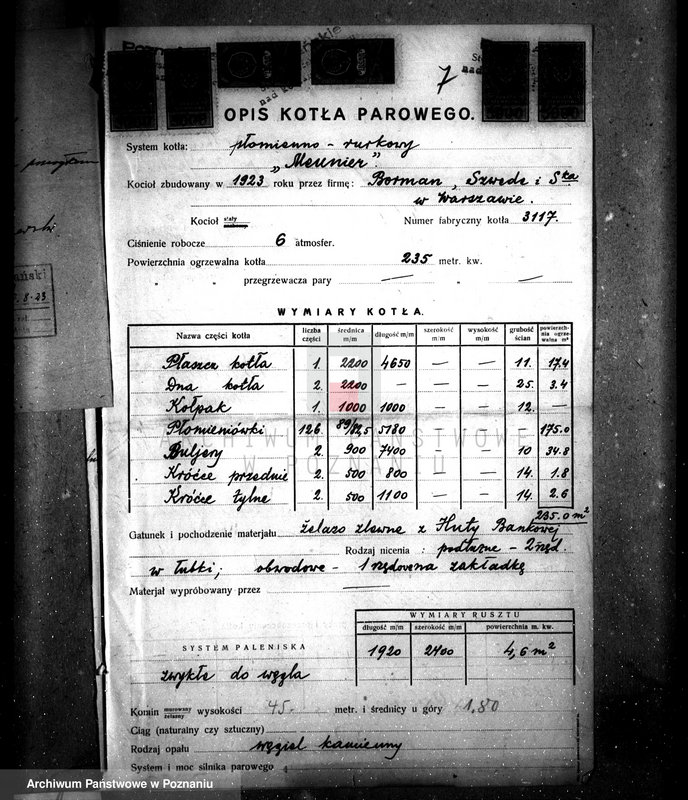 7
OPIS KOTŁA PAROWEGO.
System kotła: płomienno - rurkowy
„Meunier".
Kocioł zbudowany w 1923 roku przez firmę: Borman, Szwede i Ska
w Warszawie.
Kocioł stały Numer fabryczny kotła 3117.
Ciśnienie robocze 6 atmosfer.
Powierzchnia ogrzewalna kotła 235 metr. kw.
„ „ przegrzewacza pary — —
WYMIARY KOTŁA.
Nazwa części kotła liczba części średnica m/m długość m/m szerokość m/m wysokość m/m grubość ścian powierzchnia ogrzewalna m²
Płaszcz kotła 1. 2200 4650 — — 11. 17.4
Dna kotła 2. 2200 — — — 25. 3.4
Kołpak 1. 1000 1000 — — 12. —
Płomieniówki 126. 89/82,5 5180 175.0
Buljery 2. 900 7400 — — 10 34.8
Króćce przednie 2. 500 800 — — 14. 1.8
Króćce tylne 2. 500 1100 — — 14. 2.6
235.0 m²
Gatunek i pochodzenie materjału żelazo zlewne z Huty Bankowej
Rodzaj nicenia : podłużne - 2 rzęd.
w łubki; obwodowe - 1 rzędowena zakładkę
Materjał wypróbowany przez —
WYMIARY RUSZTU
długość m/m szerokość m/m powierzchnia m. kw.
SYSTEM PALENISKA 1920 2400 4,6 m²
zwykłe do węgla
Komin murowany żelazny wysokości 45.- metr. i średnicy u góry 1.80
Ciąg (naturalny czy sztuczny)
Rodzaj opału węgiel kamienny
System i moc silnika parowego
ARCHIWUM PAŃSTWOWE
W POZNANIU
Archiwum Państwowe w Poznaniu